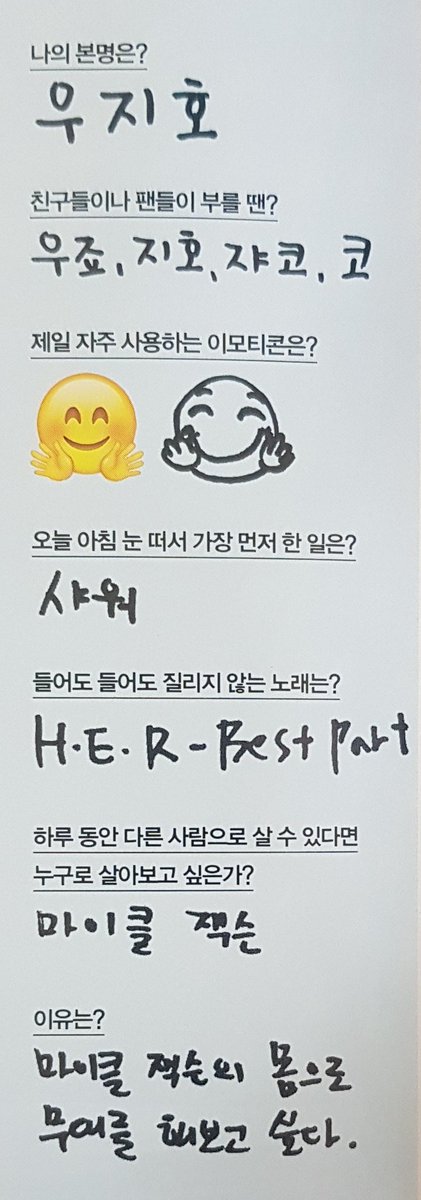 나의 본명은?
우지호
친구들이나 팬들이 부를 땐?
우죠, 지호, 쟈코, 코
제일 자주 사용하는 이모티콘은?
오늘 아침 눈 떠서 가장 먼저 한 일은?
샤워
들어도 들어도 질리지 않는 노래는?
H.E.R - Best Part
하루 동안 다른 사람으로 살 수 있다면
누구로 살아보고 싶은가?
마이클 잭슨
이유는?
마이클 잭슨의 몸으로
무대를 해보고 싶다.